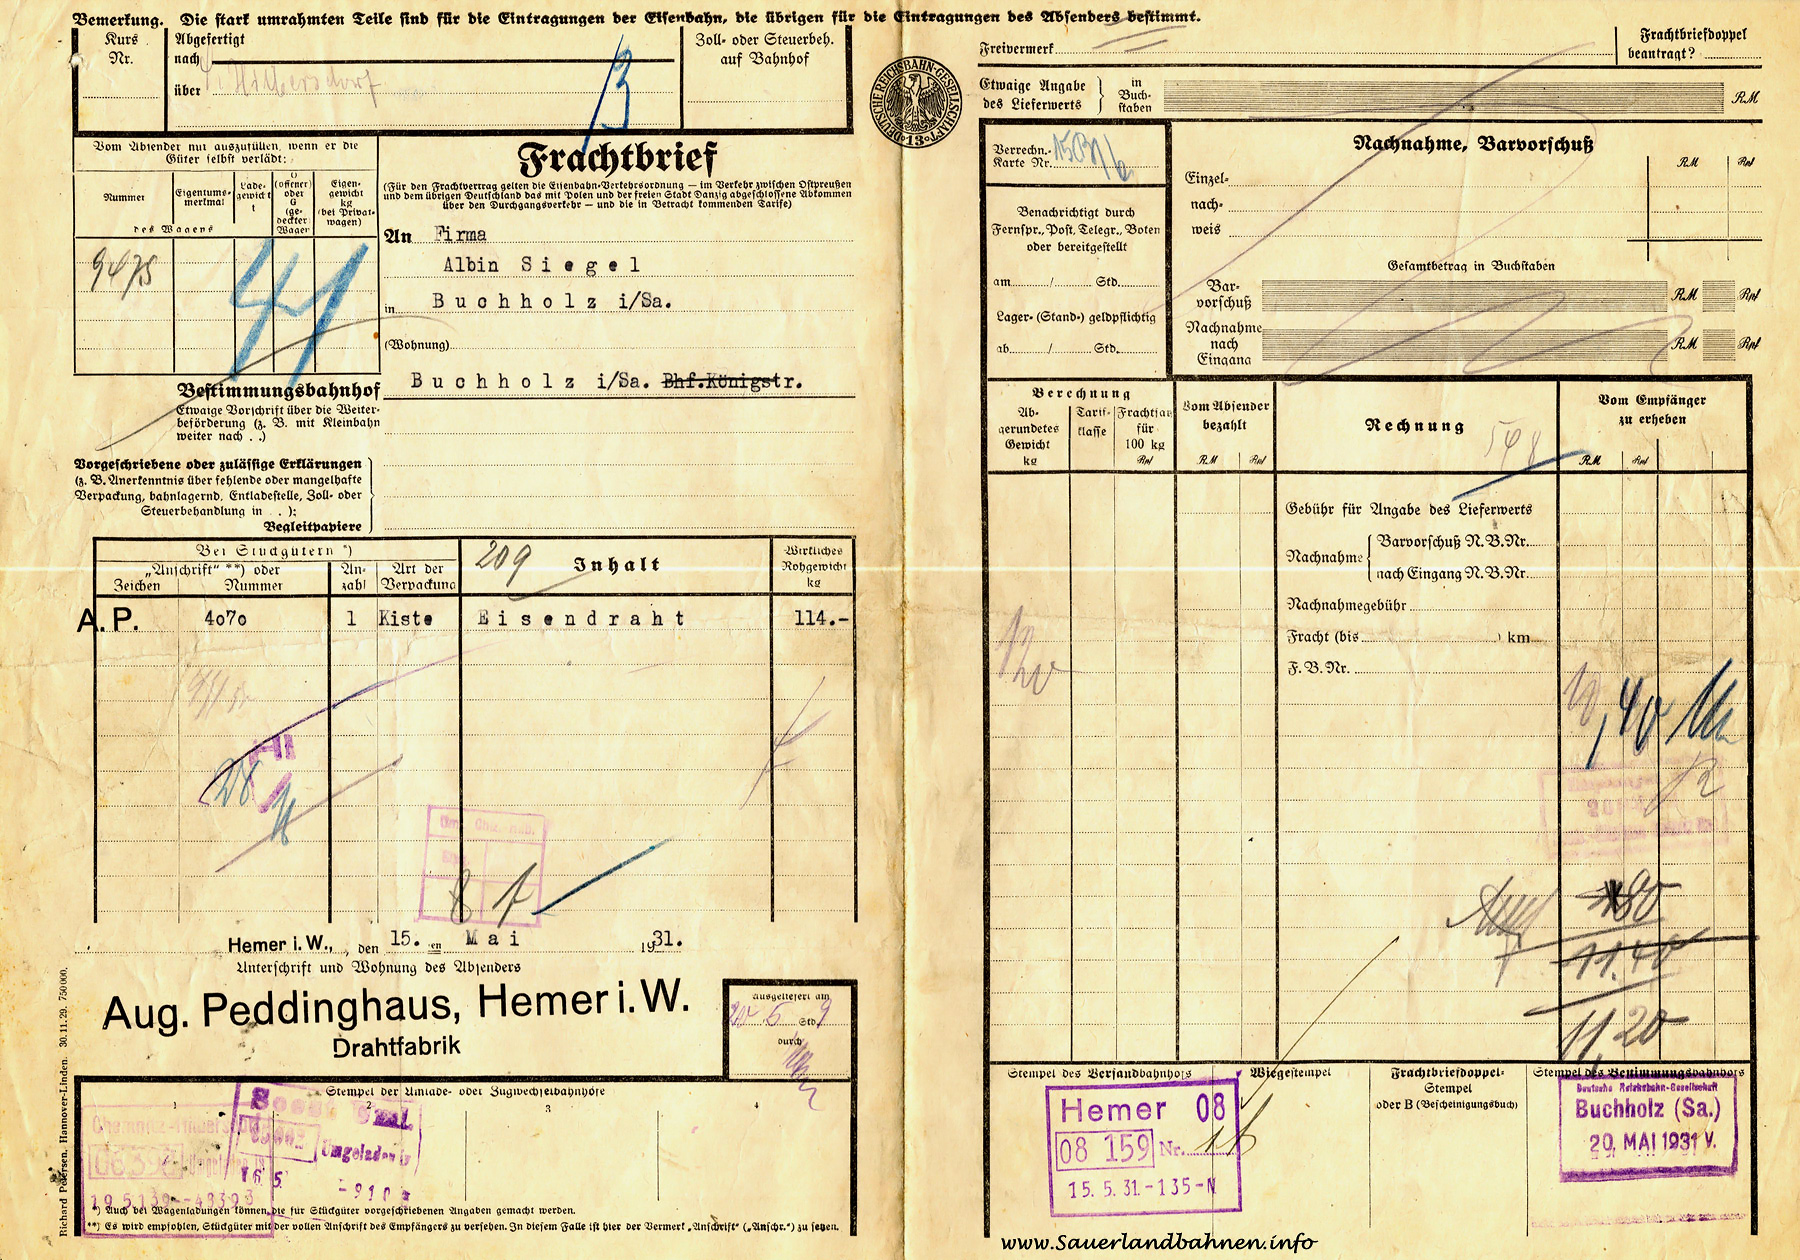 Bemerkung. Die stark umrahmten Teile sind für die Eintragungen der Eisenbahn, die übrigen für die Eintragungen des Absenders bestimmt.
Kurs
Nr.
Abgefertigt
nach
über Hilbersdorf
3
Zoll- oder Steuerbeh.
auf Bahnhof
DEUTSCHE REICHSBAHN-GESELLSCHAFT
13
Vom Absender nur auszufüllen, wenn er die
Güter selbst verlädt:
Nummer
Eigentums-
merkmal
Lade-
gewicht
t
O
(offener)
oder
G
(ge-
deckter)
Wagen
Eigen-
gewicht
kg
(bei Privat-
wagen)
des Wagens
9475
41
Frachtbrief
(Für den Frachtvertrag gelten die Eisenbahn-Verkehrsordnung — im Verkehr zwischen Ostpreußen
und dem übrigen Deutschland das mit Polen und der freien Stadt Danzig abgeschlossene Abkommen
über den Durchgangsverkehr — und die in Betracht kommenden Tarife)
An Firma
Albin Siegel
in Buchholz i/Sa.
(Wohnung)
Bestimmungsbahnhof Buchholz i/Sa. Bhf.Königstr.
Etwaige Vorschrift über die Weiter-
beförderung (z. B. mit Kleinbahn
weiter nach . .)
Vorgeschriebene oder zulässige Erklärungen
(z. B. Anerkenntnis über fehlende oder mangelhafte
Verpackung, bahnlagernd, Entladestelle, Zoll- oder
Steuerbehandlung in . . ):
Begleitpapiere
Bei Stückgütern *)
„Anschrift“ **) oder
Zeichen Nummer
An-
zahl
Art der
Verpackung
209
Inhalt
Wirkliches
Rohgewicht
kg
A.P. 4070 1 Kiste Eisendraht 114.-
28
8 1
Hemer i. W., den 15. ten Mai 1931.
Unterschrift und Wohnung des Absenders
Aug. Peddinghaus, Hemer i. W.
Drahtfabrik
ausgeliefert am
20 5 Std. 9
durch
Stempel der Umlade- oder Zugwechselbahnhöfe
1 2 3 4
Chemnitz-Hilbersdorf
Soest
Umgeladen in
16.5.
*) Auch bei Wagenladungen können die für Stückgüter vorgeschriebenen Angaben gemacht werden.
**) Es wird empfohlen, Stückgüter mit der vollen Anschrift des Empfängers zu versehen. In diesem Falle ist hier der Vermerk „Anschrift“ („Anschr.“) zu setzen.
Richard Petersen, Hannover-Linden. 30. 11. 29. 750 000.
Freivermerk
Frachtbriefdoppel
beantragt?
Etwaige Angabe
des Lieferwerts
in
Buch-
staben
RM
Verrechn.-
Karte Nr.
Benachrichtigt durch
Fernspr., Post, Telegr., Boten
oder bereitgestellt
am / Std.
Lager- (Stand-) geldpflichtig
ab / Std.
Nachnahme, Barvorschuß
RM Rpf
Einzel-
nach-
weis
Gesamtbetrag in Buchstaben
Bar-
vorschuß
RM Rpf
Nachnahme
nach
Eingang
RM Rpf
Berechnung
Ab-
gerundetes
Gewicht
kg
Tarif-
klasse
Frachtsatz
für
100 kg
Rpf
Vom Absender
bezahlt
RM Rpf
Rechnung
Vom Empfänger
zu erheben
RM Rpf
Gebühr für Angabe des Lieferwerts
Nachnahme
Barvorschuß N.B.Nr.
nach Eingang N.B.Nr.
Nachnahmegebühr
Fracht (bis ) km
F. B. Nr.
120
10,40
80
11.40
11,20
Stempel des Versandbahnhofs
Wiegestempel
Frachtbriefdoppel-
Stempel
oder B (Bescheinigungsbuch)
Stempel des Bestimmungsbahnhofs
Hemer 08
08 159 Nr. 16
15. 5. 31. -135-N
Deutsche Reichsbahn-Gesellschaft
Buchholz (Sa.)
20. MAI 1931 V.
www.Sauerlandbahnen.info